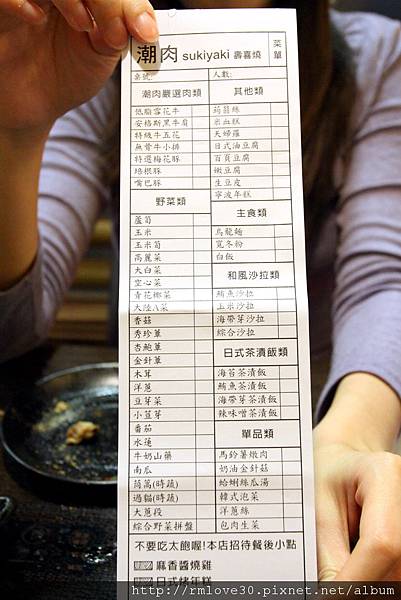 潮肉 sukiyaki 壽喜燒
菜單
桌號:
人數:
潮肉嚴選肉類
低脂雪花牛
安格斯黑牛肩
特級牛五花
無骨牛小排
特選梅花豚
培根豚
嘴巴豚
野菜類
蘆筍
玉米
玉米筍
高麗菜
大白菜
空心菜
青花椰菜
大陸A菜
香菇
秀珍蕈
杏鮑蕈
金針蕈
木耳
洋蔥
豆芽菜
小荳芽
番茄
水蓮
牛奶山藥
南瓜
茼萵(時蔬)
過貓(時蔬)
大蔥段
綜合野菜拼盤
其他類
蒟蒻絲
米血糕
天婦羅
日式油豆腐
百頁豆腐
嫩豆腐
生豆皮
寧波年糕
主食類
烏龍麵
寬冬粉
白飯
和風沙拉類
鮪魚沙拉
玉米沙拉
海帶芽沙拉
綜合沙拉
日式茶漬飯類
海苔茶漬飯
鮪魚茶漬飯
海帶芽茶漬飯
辣味噌茶漬飯
單品類
馬鈴薯燉肉
奶油金針菇
蛤蜊絲瓜湯
韓式泡菜
洋蔥絲
包肉生菜
不要吃太飽喔!本店招待餐後小點
麻香醬燒雞
日式烤年糕
http://rmlove30.pixnet.net/album